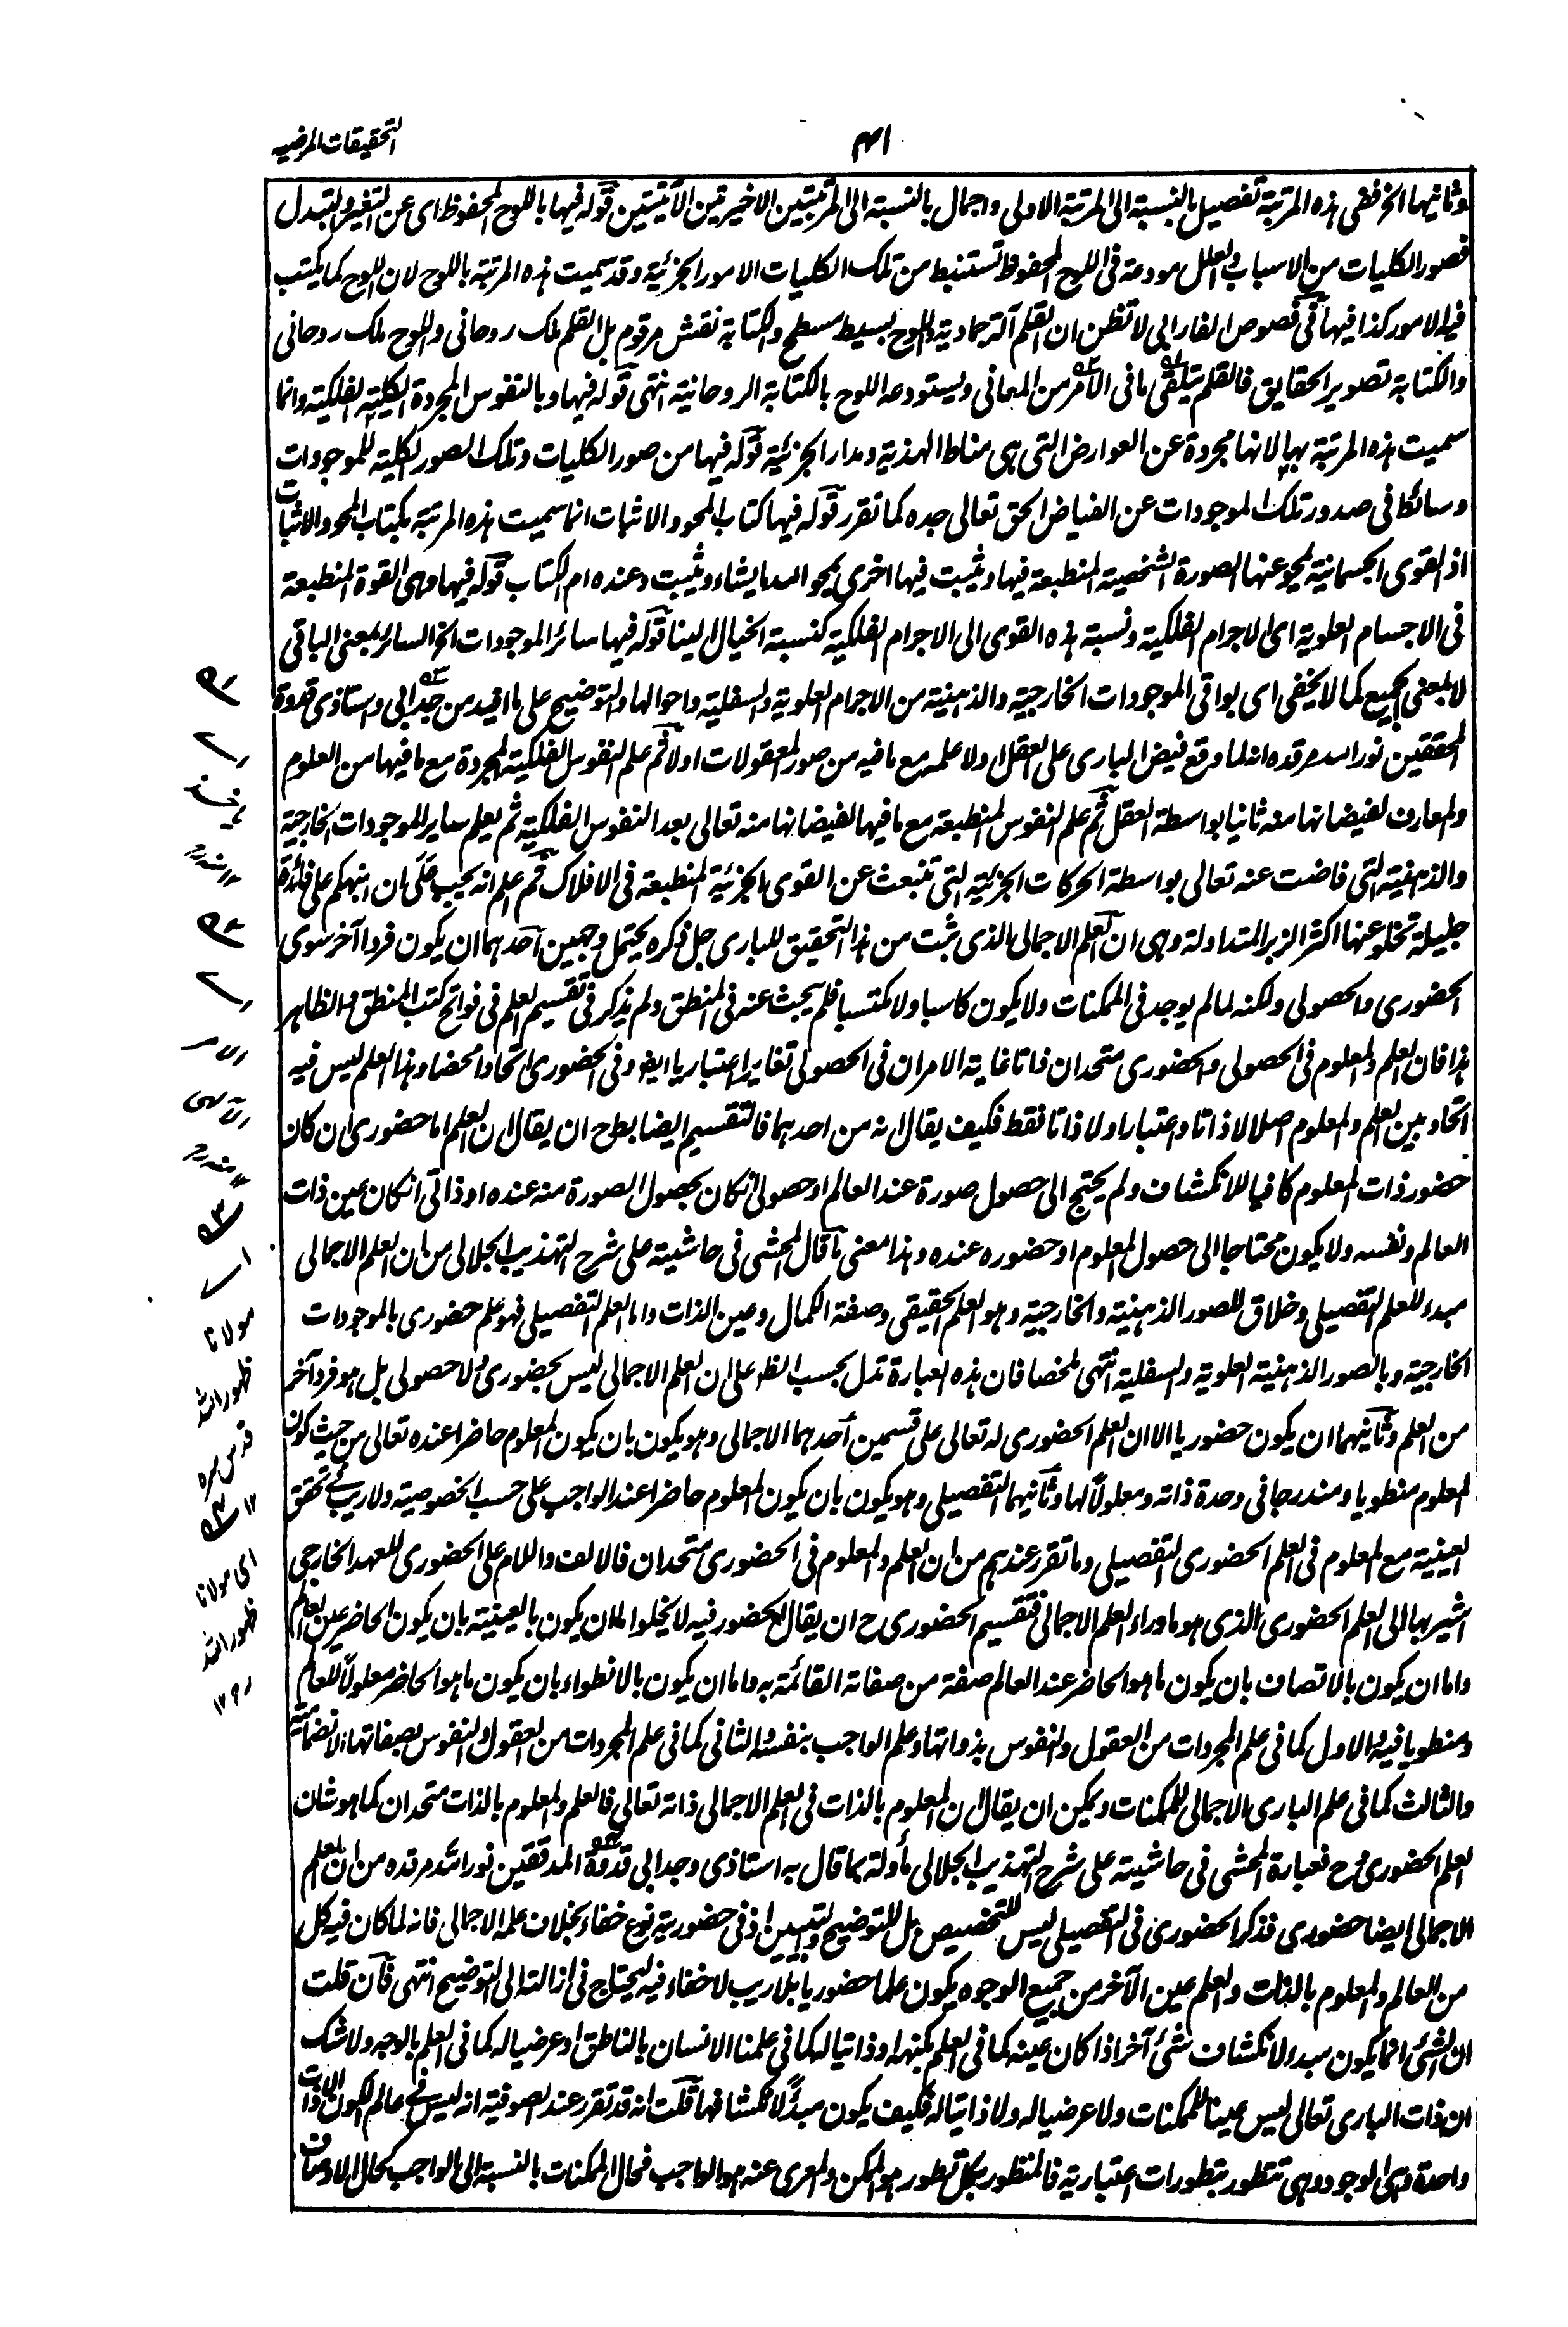 التحقيقات المرضيه
١٤١
وثانيها الخ ففى هذه المرتبة تفصيل بالنسبة الى المرتبة الاولى واجمال بالنسبة الى المرتبتين الاخيرتين الآتيتين قوله فيها باللوح المحفوظ اى عن التغير والتبدل
فصور الكليات من الاسباب والعلل مودعة فى اللوح المحفوظ تستنبط من تلك الكليات الامور الجزئية وقد سميت هذه المرتبة باللوح لان اللوح كما يكتب
فيه الامور كذا فيها فى فصوص الفارابى لا تظن ان القلم آلة جمادية واللوح بسيط مسطح والكتابة نقش مرقوم بل القلم ملك روحانى واللوح ملك روحانى
والكتابة تصوير الحقايق فالقلم يتلقى ما فى الامر من المعانى ويستودعه اللوح بالكتابة الروحانية انتهى قوله فيها وبالنفوس المجردة الكلية الفلكية وانما
سميت هذه المرتبة بها لانها مجردة عن العوارض التى هى مناط الهذية ومدار الجزئية قوله فيها من صور الكليات وتلك الصور الكلية للموجودات
وسائط فى صدور تلك الموجودات عن الفياض الحق تعالى جده كما تقرر قوله فيها كتاب المحو والاثبات انما سميت هذه المرتبة بكتاب المحو والاثبات
اذ القوى الجسمانية يمحو عنها الصورة الشخصية المنطبعة فيها ويثبت فيها اخرى يمحو الله ما يشاء ويثبت وعنده ام الكتاب قوله فيها وهى القوة المنطبعة
فى الاجسام العلوية اى الاجرام الفلكية ونسبة هذه القوى الى الاجرام الفلكية كنسبة الخيال الينا قوله فيها سائر الموجودات الخ السائر بمعنى الباقى
لا بمعنى الجميع كما لا يخفى اى بواقى الموجودات الخارجية والذهنية من الاجرام العلوية والسفلية واحوالها والتوضيح على ما افيد من جد ابى واستاذى قدوة
المحققين نور الله مرقده انه لما وقع فيض البارى على العقل اولا علمه مع ما فيه من صور المعقولات اولا ثم علم النفوس الفلكية المجردة مع ما فيها من العلوم
والمعارف لفيضانها منه ثانيا بواسطة العقل ثم علم النفوس المنطبعة مع ما فيها لفيضانها منه تعالى بعد النفوس الفلكية ثم يعلم ساير الموجودات الخارجية
والذهنية التى فاضت عنه تعالى بواسطة الحركات الجزئية التى تنبعث عن القوى الجزئية المنطبعة فى الافلاك ثم اعلم انه يجب على ان انبهكم على فائدة
جليلة تخلو عنها اكثر الزبر المتداولة وهى ان العلم الاجمالى الذى ثبت من هذا التحقيق للبارى جل ذكره يحتمل وجهين احدهما ان يكون فردا آخر سوى
الحضورى والحصولى ولكنه لما لم يوجد فى الممكنات ولا يكون كاسبا ولا مكتسبا فلم يبحث عنه فى المنطق ولم يذكر فى تقسيم العلم فى فواتح كتب المنطق والظاهر
هذا فان العلم والمعلوم فى الحصولى والحضورى متحدان ذاتا غاية الامر ان فى الحصولى تغايرا اعتباريا ايض وفى الحضورى اتحادا محضا وهذا العلم ليس فيه
اتحاد بين العلم والمعلوم اصلا لا ذاتا واعتبارا ولا ذاتا فقط فكيف يقال انه من احدهما فالتقسيم ايضا بطح ان يقال ان العلم اما حضورى ان كان
حضور ذات المعلوم كافيا للانكشاف ولم يحتج الى حصول صورة عند العالم او حصولى انكان بحصول الصورة منه عنده او ذاتى انكان عين ذات
العالم ونفسه ولا يكون محتاجا الى حصول المعلوم او حضوره عنده وهذا معنى ما قال المحشى فى حاشيته على شرح التهذيب الجلالى من ان العلم الاجمالى
مبدء للعلم التفصيلى وخلاق للصور الذهنية والخارجية وهو العلم الحقيقى وصفة الكمال وعين الذات واما العلم التفصيلى فهو علم حضورى بالموجودات
الخارجية وبالصور الذهنية العلوية والسفلية انتهى ملخصا فان هذه العبارة تدل بحسب الظاهر على ان العلم الاجمالى ليس بحضورى ولا حصولى بل هو فرد آخر
من العلم وثانيهما ان يكون حضوريا الا ان العلم الحضورى له تعالى على قسمين احدهما الاجمالى وهو يكون بان يكون المعلوم حاضرا عنده تعالى من حيث كون
المعلوم منطويا ومندرجا فى وحدة ذاته ومعلولا لها وثانيهما التفصيلى وهو يكون بان يكون المعلوم حاضرا عند الواجب على حسب الخصوصية ولا ريب فى تحقق
العينية مع المعلوم فى العلم الحضورى التفصيلى وما تقرر عندهم من ان العلم والمعلوم فى الحضورى متحدان فالالف واللام على الحضورى للعهد الخارجى
اشير بها الى العلم الحضورى الذى هو ما وراء العلم الاجمالى فتقسيم الحضورى ح ان يقال الحضور فيه لا يخلو اما ان يكون بالعينية بان يكون الحاضر عين العالم
واما ان يكون بالاتصاف بان يكون ما هو الحاضر عند العالم صفة من صفاته القائمة به واما ان يكون بالانطواء بان يكون ما هو الحاضر معلولا للعالم
ومنطويا فيه والاول كما فى علم المجردات من العقول والنفوس بذواتها وعلم الواجب بنفسه والثانى كما فى علم المجردات من العقول والنفوس بصفاتها الانضمامية
والثالث كما فى علم البارى الاجمالى للممكنات ويمكن ان يقال ان المعلوم بالذات فى العلم الاجمالى ذاته تعالى فالعلم والمعلوم بالذات متحدان كما هو شان
العلم الحضورى وح فعبارة المحشى فى حاشيته على شرح التهذيب الجلالى مأولة بما قال به استاذى وجد ابى قدوة المدققين نور الله مرقده من ان العلم
الاجمالى ايضا حضورى فذكر الحضورى فى التفصيلى ليس للتخصيص بل للتوضيح والتبيين اذ فى حضوريته نوع خفاء بخلاف علمه الاجمالى فانه لما كان فيه كل
من العالم والمعلوم بالذات والعلم عين الآخر من جميع الوجوه يكون علما حضوريا بلا ريب لا خفاء فيه ليحتاج فى ازالته الى التوضيح انتهى فان قلت
ان الشئ انما يكون مبدء لانكشاف شئ آخر اذا كان عينه كما فى العلم بكنهه او ذاتيا له كما فى علمنا الانسان بالناطق او عرضيا له كما فى العلم بالوجه ولا شك
ان ذات البارى تعالى ليس عينا للممكنات ولا عرضيا له ولا ذاتيا له فكيف يكون مبدأ لانكشافها قلت انه قد تقرر عند الصوفية انه ليس فى عالم الكون الا ذات
واحدة وهى الوجود وهى تتطور بتطورات اعتبارية فالمنظور بكل تطور هو الممكن والمعرى عنه هو الواجب فحال الممكنات بالنسبة الى الواجب كحال الاوصاف
مولانا
ظهور الله
قدس سره
١٢
اى مولانا
ظهور الله
رح ١٢